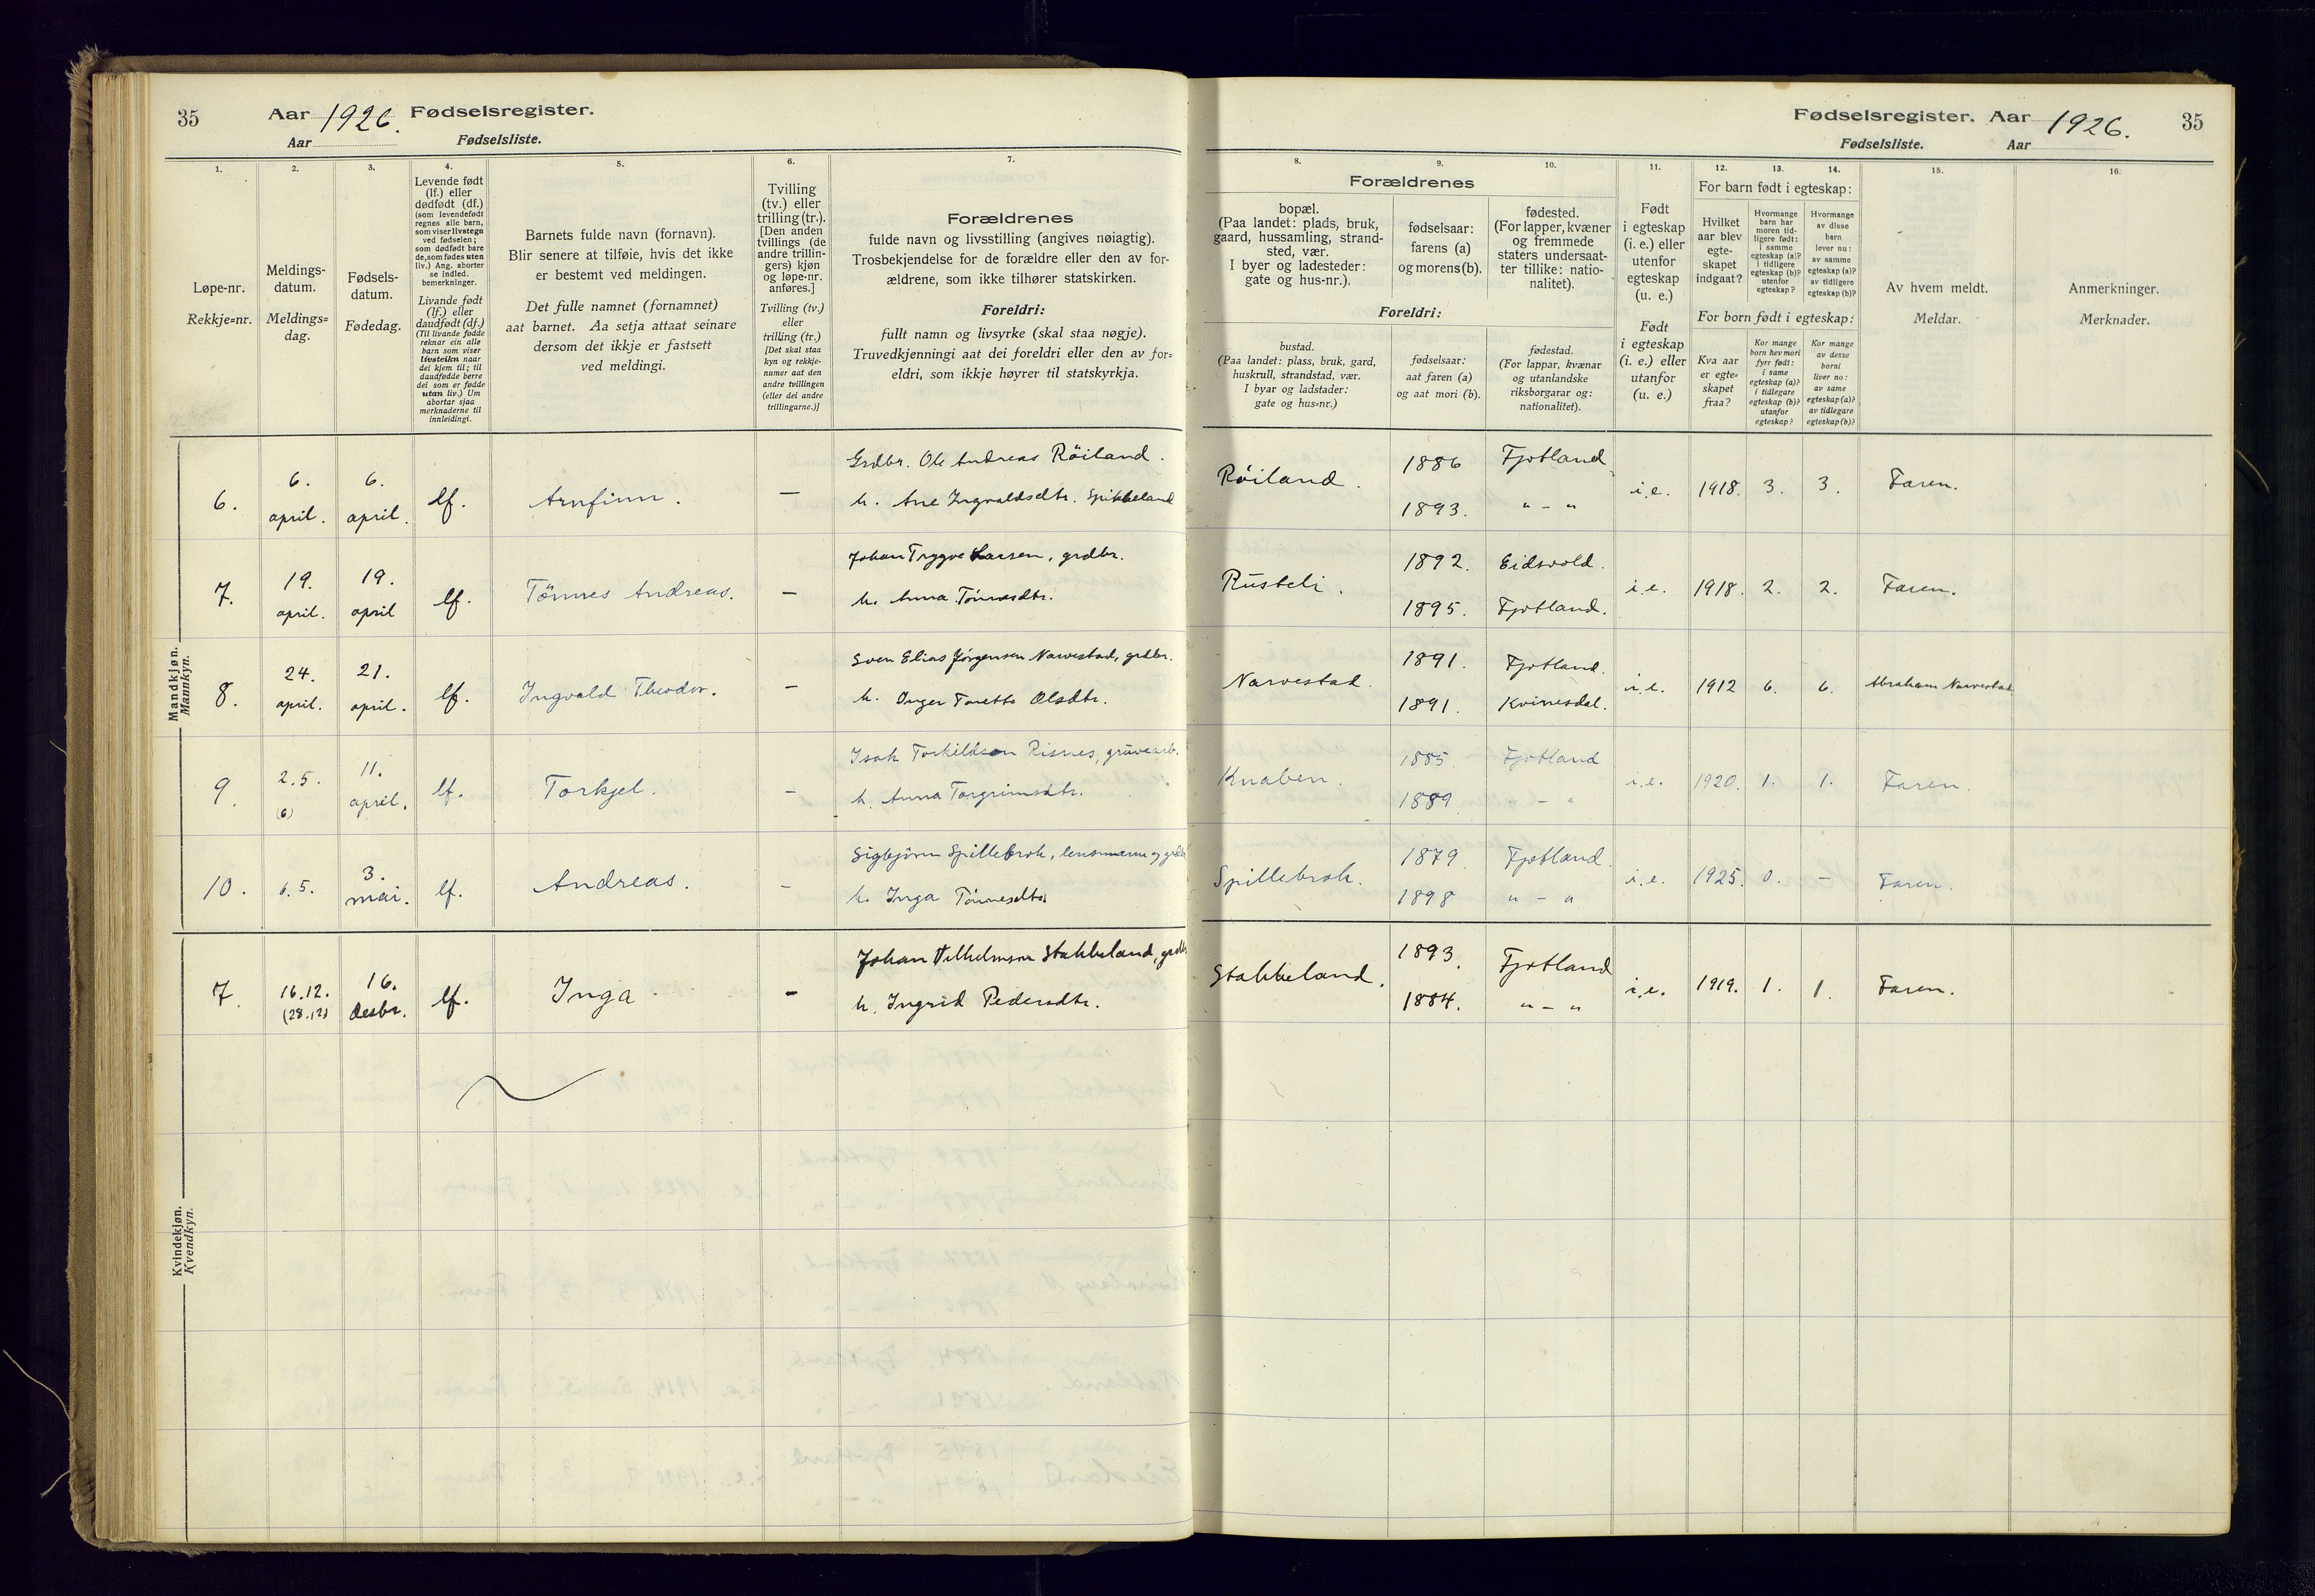 35
Aar 1926. Fødselsregister.
Aar Fødselsliste.
1.
2.
3.
4.
5.
6.
7.
Løpe-nr.
Rekkje=nr.
Meldings-
datum.
Meldings=
dag.
Fødsels-
datum.
Fødedag.
Levende født
(lf.) eller
dødfødt (df.)
(som levendefødt
regnes alle barn,
som viser livstegn
ved fødselen;
som dødfødt bare
de, som fødes uten
liv.) Ang. aborter
se indled.
bemerkninger.
Livande født
(lf.) eller
daudfødt (df.)
(Til livande fødde
reknar ein alle
barn som viser
livsteikn naar
dei kjem til; til
daudfødde berre
dei som er fødde
utan liv.) Um
abortar sjaa
merknaderne til
innleidingi.
Barnets fulde navn (fornavn).
Blir senere at tilføie, hvis det ikke
er bestemt ved meldingen.
Det fulle namnet (fornamnet)
aat barnet. Aa setja attaat seinare
dersom det ikkje er fastsett
ved meldingi.
Tvilling
(tv.) eller
trilling (tr.).
[Den anden
tvillings (de
andre trillin-
gers) kjøn
og løpe-nr.
anføres.]
Tvilling (tv.)
eller
trilling (tr.)
[Det skal staa
kyn og rekkje-
numer aat den
andre tvillingen
(eller dei andre
trillingarne.)]
Forældrenes
fulde navn og livsstilling (angives nøiagtig).
Trosbekjendelse for de forældre eller den av for-
ældrene, som ikke tilhører statskirken.
Foreldri:
fullt namn og livsyrke (skal staa nøgje).
Truvedkjenningi aat dei foreldri eller den av for=
eldri, som ikkje høyrer til statskyrkja.
Mandkjøn.
Mannkyn.
6. 6. april. 6. april. lf. Arnfinn. —
Grdbr. Ole Andreas Röiland.
h. Ane Ingvaldsdtr. Spikkeland
7. 19. april. 19. april lf. Tönnes Andreas. —
Johan Trygve Larsen, grdbr.
h. Anna Tönnesdtr.
8. 24. april. 21. april. lf. Ingvald Theodor. —
Sven Elias Jörgensen Narvestad, grdbr.
h. Inger Toretto Olsdtr.
9. 2.5. (6) 11. april. lf. Torkjel. —
Isak Torkildsen Risnes, gruvearb.
h. Anna Torgrimsdtr.
10. 6.5. 3. mai. lf. Andreas. —
Sigbjörn Spillebrok, lensmann og grdbr
h. Inga Tönnesdtr.
Kvindekjøn.
Kvendkyn.
7. 16.12. (28.12) 16. desbr. lf. Inga. —
Johan Vilhelmson Stakkeland, grdbr
h. Ingrid Pedersdtr.
Fødselsregister. Aar 1926. 35
Fødselsliste. Aar
8.
9.
10.
11.
12.
13.
14.
15.
16.
Forældrenes
bopæl.
(Paa landet: plads, bruk,
gaard, hussamling, strand-
sted, vær.
I byer og ladesteder:
gate og hus-nr.).
fødselsaar:
farens (a)
og morens (b).
fødested.
(For lapper, kvæner
og fremmede
staters undersaat-
ter tillike: natio-
nalitet).
Foreldri:
bustad.
(Paa landet: plass, bruk, gard,
huskrull, strandstad, vær.
I byar og ladstader:
gate og hus-nr.)
fødselsaar:
aat faren (a)
og aat mori (b).
fødestad.
(For lappar, kvænar
og utanlandske
riksborgarar og:
nationalitet).
Født
i egteskap
(i. e.) eller
utenfor
egteskap
(u. e.)
Født
i egteskap
(i. e.) eller
utanfor
(u. e.)
For barn født i egteskap:
Hvilket
aar blev
egte-
skapet
indgaat?
Hvormange
barn har
moren tid-
ligere født:
i samme
egteskap (a)?
i tidligere
egteskap (b)?
utenfor
egteskap?
Hvormange
av disse
barn
lever nu:
av samme
egteskap (a)?
av tidligere
egteskap (b)?
For born født i egteskap:
Kva aar
er egte=
skapet
fraa?
Kor mange
born hev mori
fyrr født:
i same
egteskap (a)?
i tidlegare
egteskap (b)?
utanfor
egteskap?
Kor mange
av desse
borni
liver no:
av same
egteskap (a)?
av tidlegare
egteskap (b)?
Av hvem meldt.
Meldar.
Anmerkninger.
Merknader.
Röiland. 1886 Fjotland i.e. 1918. 3. 3. Faren.
1893. " - "
Rusteli. 1892. Eidsvold. i.e. 1918. 2. 2. Faren.
1895. Fjotland.
Narvestad. 1891. Fjotland. i.e. 1912 6. 6. Abraham Narvestad
1891. Kvinesdal.
Knaben. 1885. Fjotland i.e. 1920. 1. 1. Faren.
1889 " - "
Spillebrok. 1879. Fjotland. i.e. 1925. 0. — Faren.
1898 " - "
Stakkeland. 1893. Fjotland i.e. 1919. 1. 1. Faren.
1884. " - "